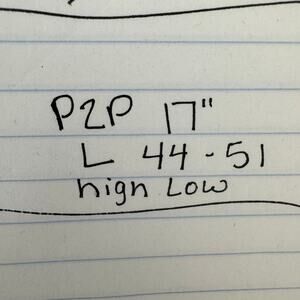 P2P 17"
L 44-51
high Low